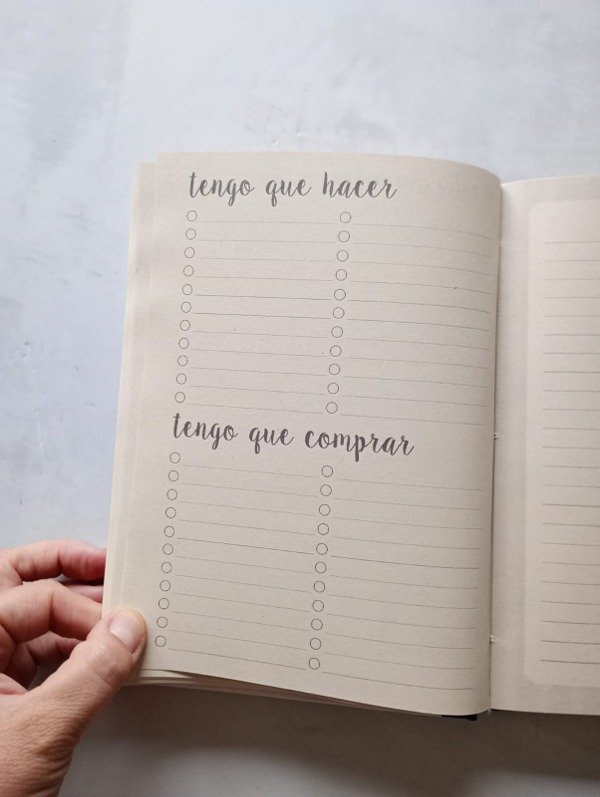 tengo que hacer
tengo que comprar